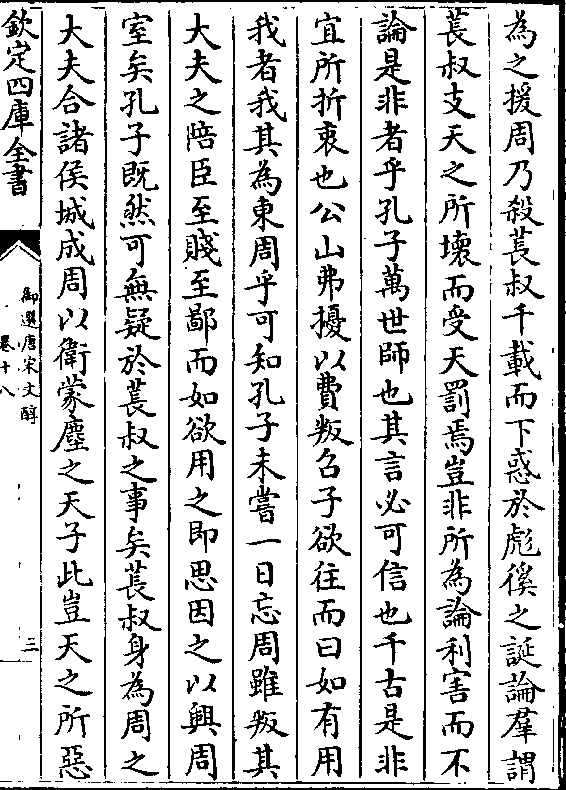 為之援周乃殺萇叔千載而下惑於彪徯之誕論羣謂
萇叔支天之所壞而受天罰焉豈非所為論利害而不
論是非者乎孔子萬世師也其言必可信也千古是非
宜所折衷也公山弗擾以費叛召子欲往而曰如有用
我者我其為東周乎可知孔子未嘗一日忘周雖叛其
大夫之陪臣至賤至鄙而如欲用之即思因之以興周
室矣孔子既然可無疑於萇叔之事矣萇叔身為周之
大夫合諸侯城成周以衛蒙塵之天子此豈天之所惡
欽定四庫全書
御選唐宋文醇
卷十八
三